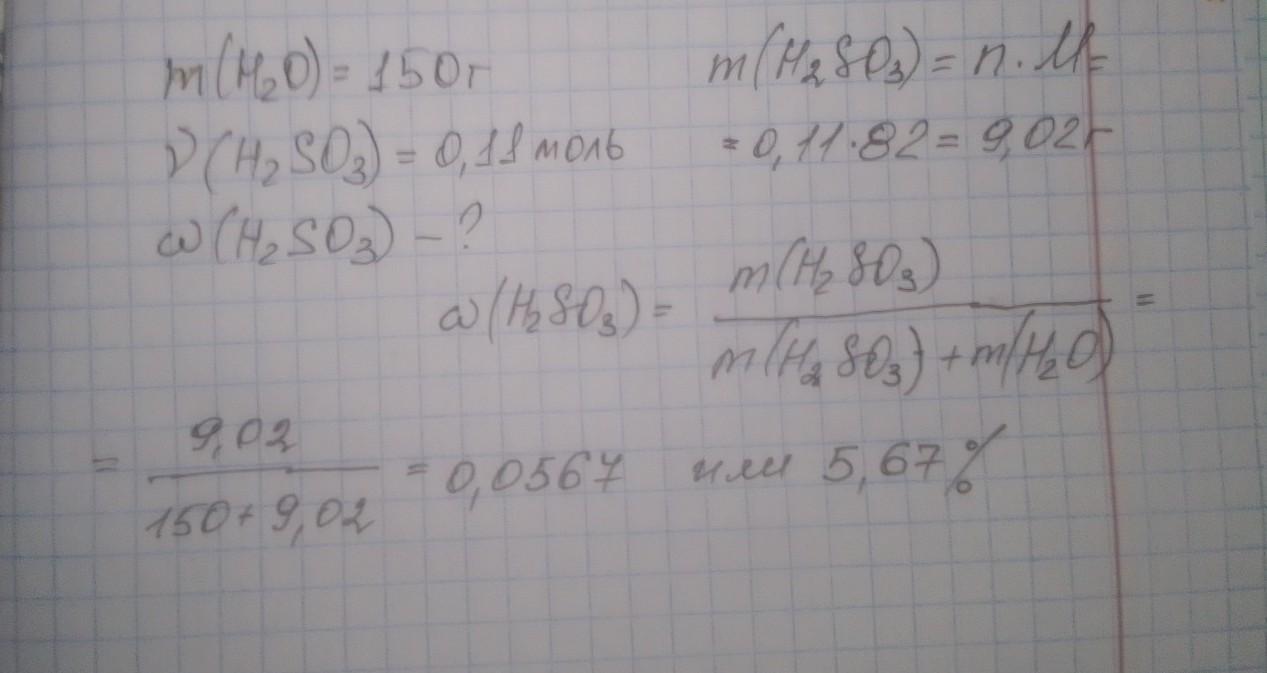 m(H₂O) = 150г
ν(H₂SO₃) = 0,11 моль
ω(H₂SO₃) – ?
m(H₂SO₃) = n · M =
= 0,11 · 82 = 9,02 г
ω(H₂SO₃) = m(H₂SO₃) / m(H₂SO₃) + m(H₂O) =
= 9,02 / 150 + 9,02 = 0,0567 или 5,67 %